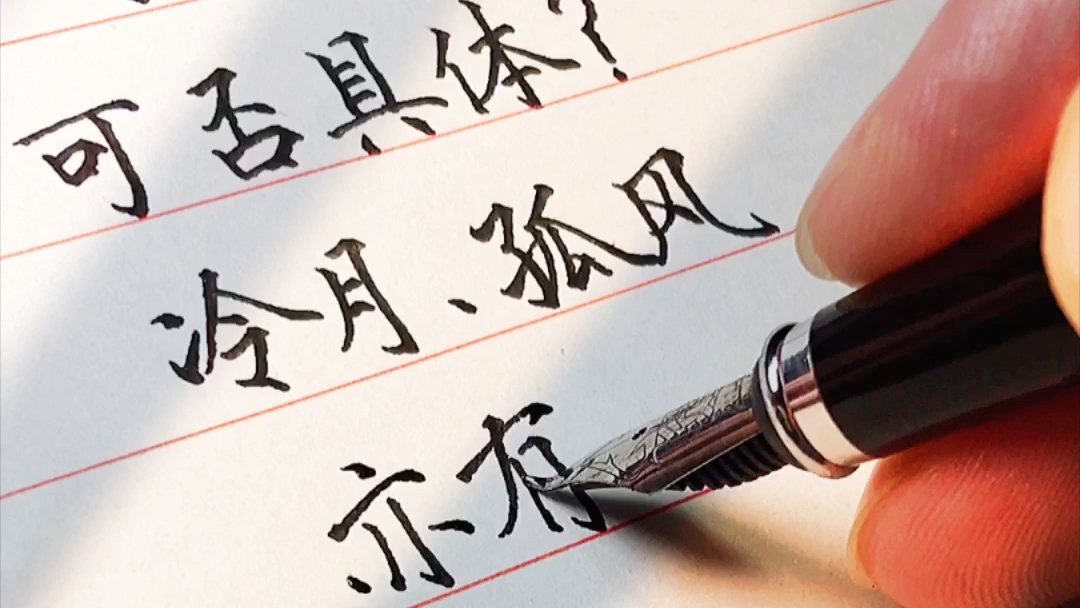 可否具体?
冷月、孤风
亦有